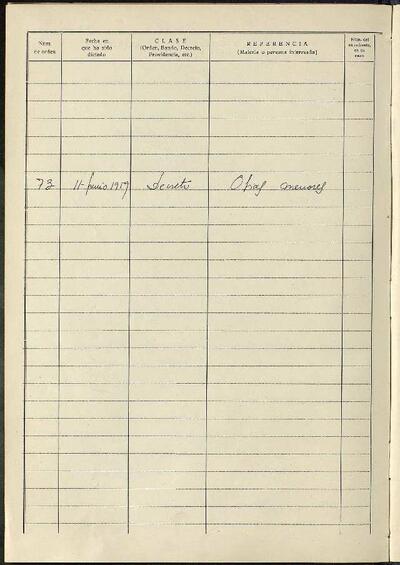 Núm. de orden
Fecha en que ha sido dictado
CLASE
(Orden, Bando, Decreto, Providencia, etc.)
REFERENCIA
(Materia o persona interesada)
Núm. del expediente, en su caso
73 11-Junio 1979 Decreto Obras menores